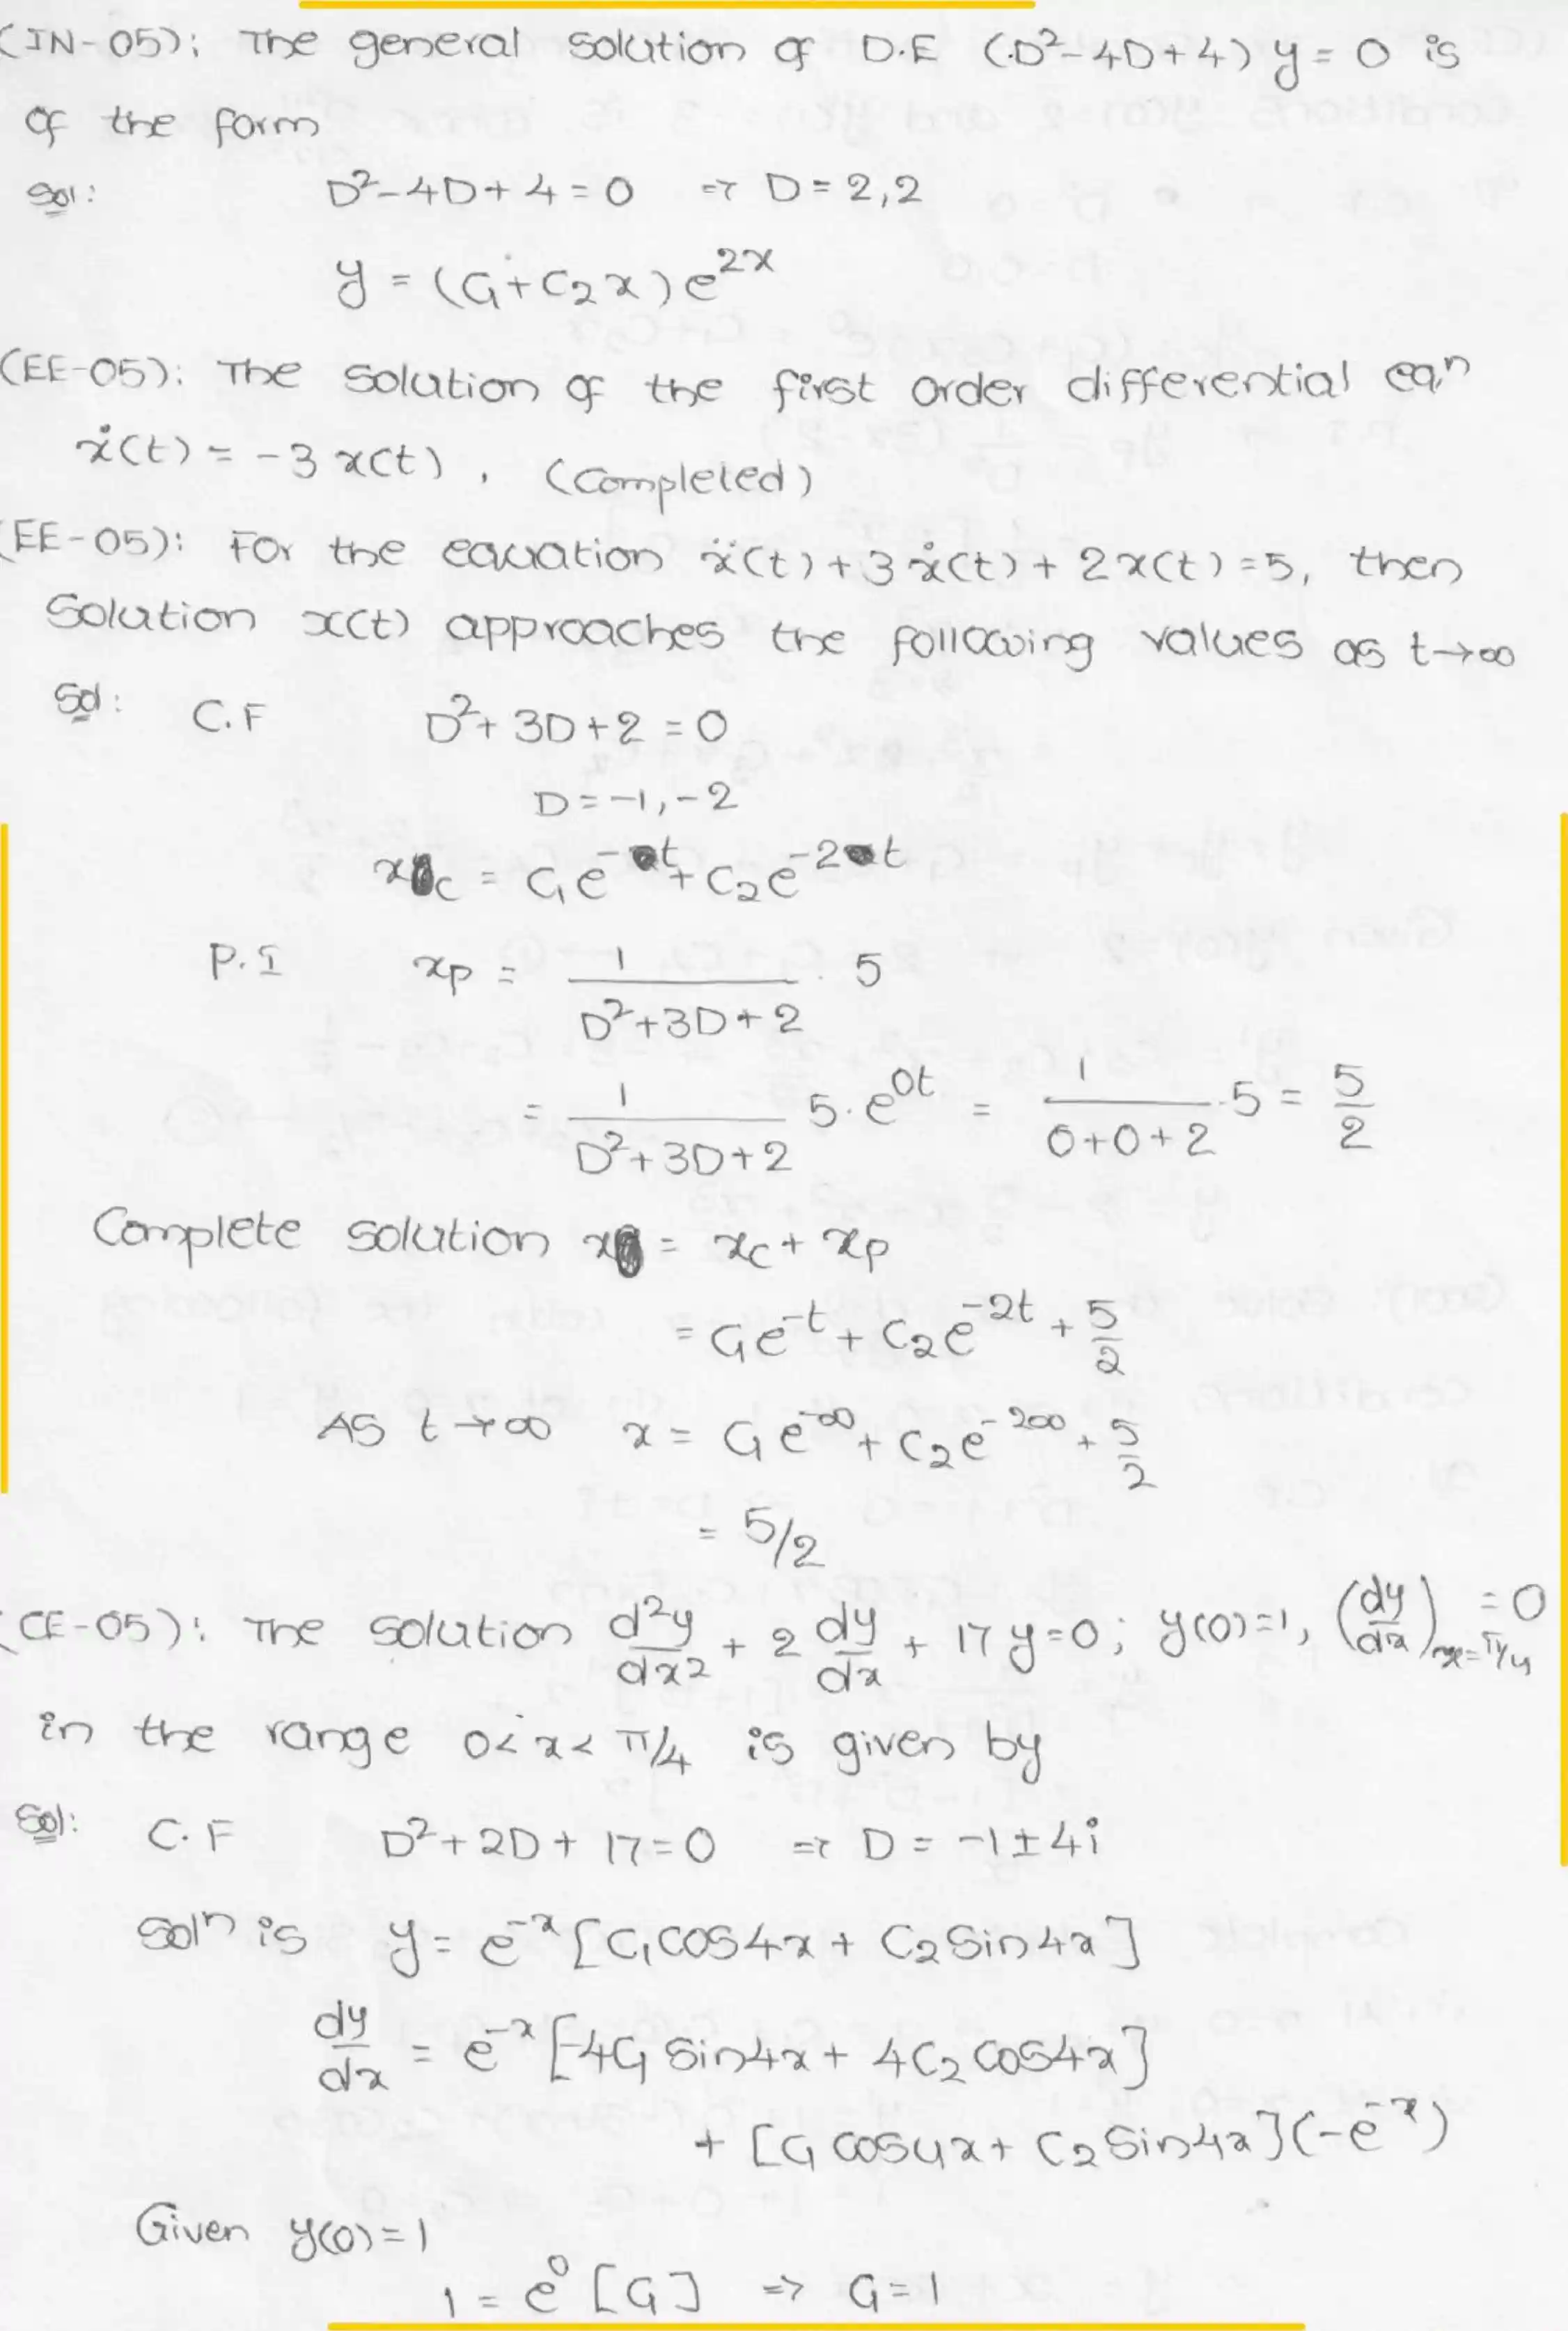 (IN-05): The general solution of D.E (D²-4D+4) y = 0 is
of the form
Sol: D²-4D+4 = 0 ⇒ D = 2,2
y = (C₁+C₂x) e²ˣ
(EE-05): The solution of the first order differential eqⁿ
ẋ(t) = -3 x(t), (Completed)
(EE-05): For the equation ẍ(t)+3ẋ(t)+2x(t)=5, then
Solution x(t) approaches the following values as t→∞
Sol: C.F D²+3D+2 = 0
D = -1,-2
x_c = C₁e^-t + C₂e^-2t
P.I x_p = 1/(D²+3D+2) . 5
= 1/(D²+3D+2) 5.e^0t = 1/(0+0+2) .5 = 5/2
Complete solution x = x_c + x_p
= C₁e^-t + C₂e^-2t + 5/2
As t→∞ x = C₁e^-∞ + C₂e^-2∞ + 5/2
= 5/2
(CE-05): The solution d²y/dx² + 2 dy/dx + 17y=0; y(0)=1, (dy/dx)_x=π/4 = 0
in the range 0<x<π/4 is given by
Sol: C.F D²+2D+17=0 ⇒ D = -1±4i
Solⁿ is y = e^-x [C₁cos4x + C₂Sin4x]
dy/dx = e^-x [-4C₁ Sin4x + 4C₂ cos4x]
+ [C₁ cos4x + C₂Sin4x](-e^-x)
Given y(0)=1
1 = e⁰ [C₁] ⇒ C₁=1